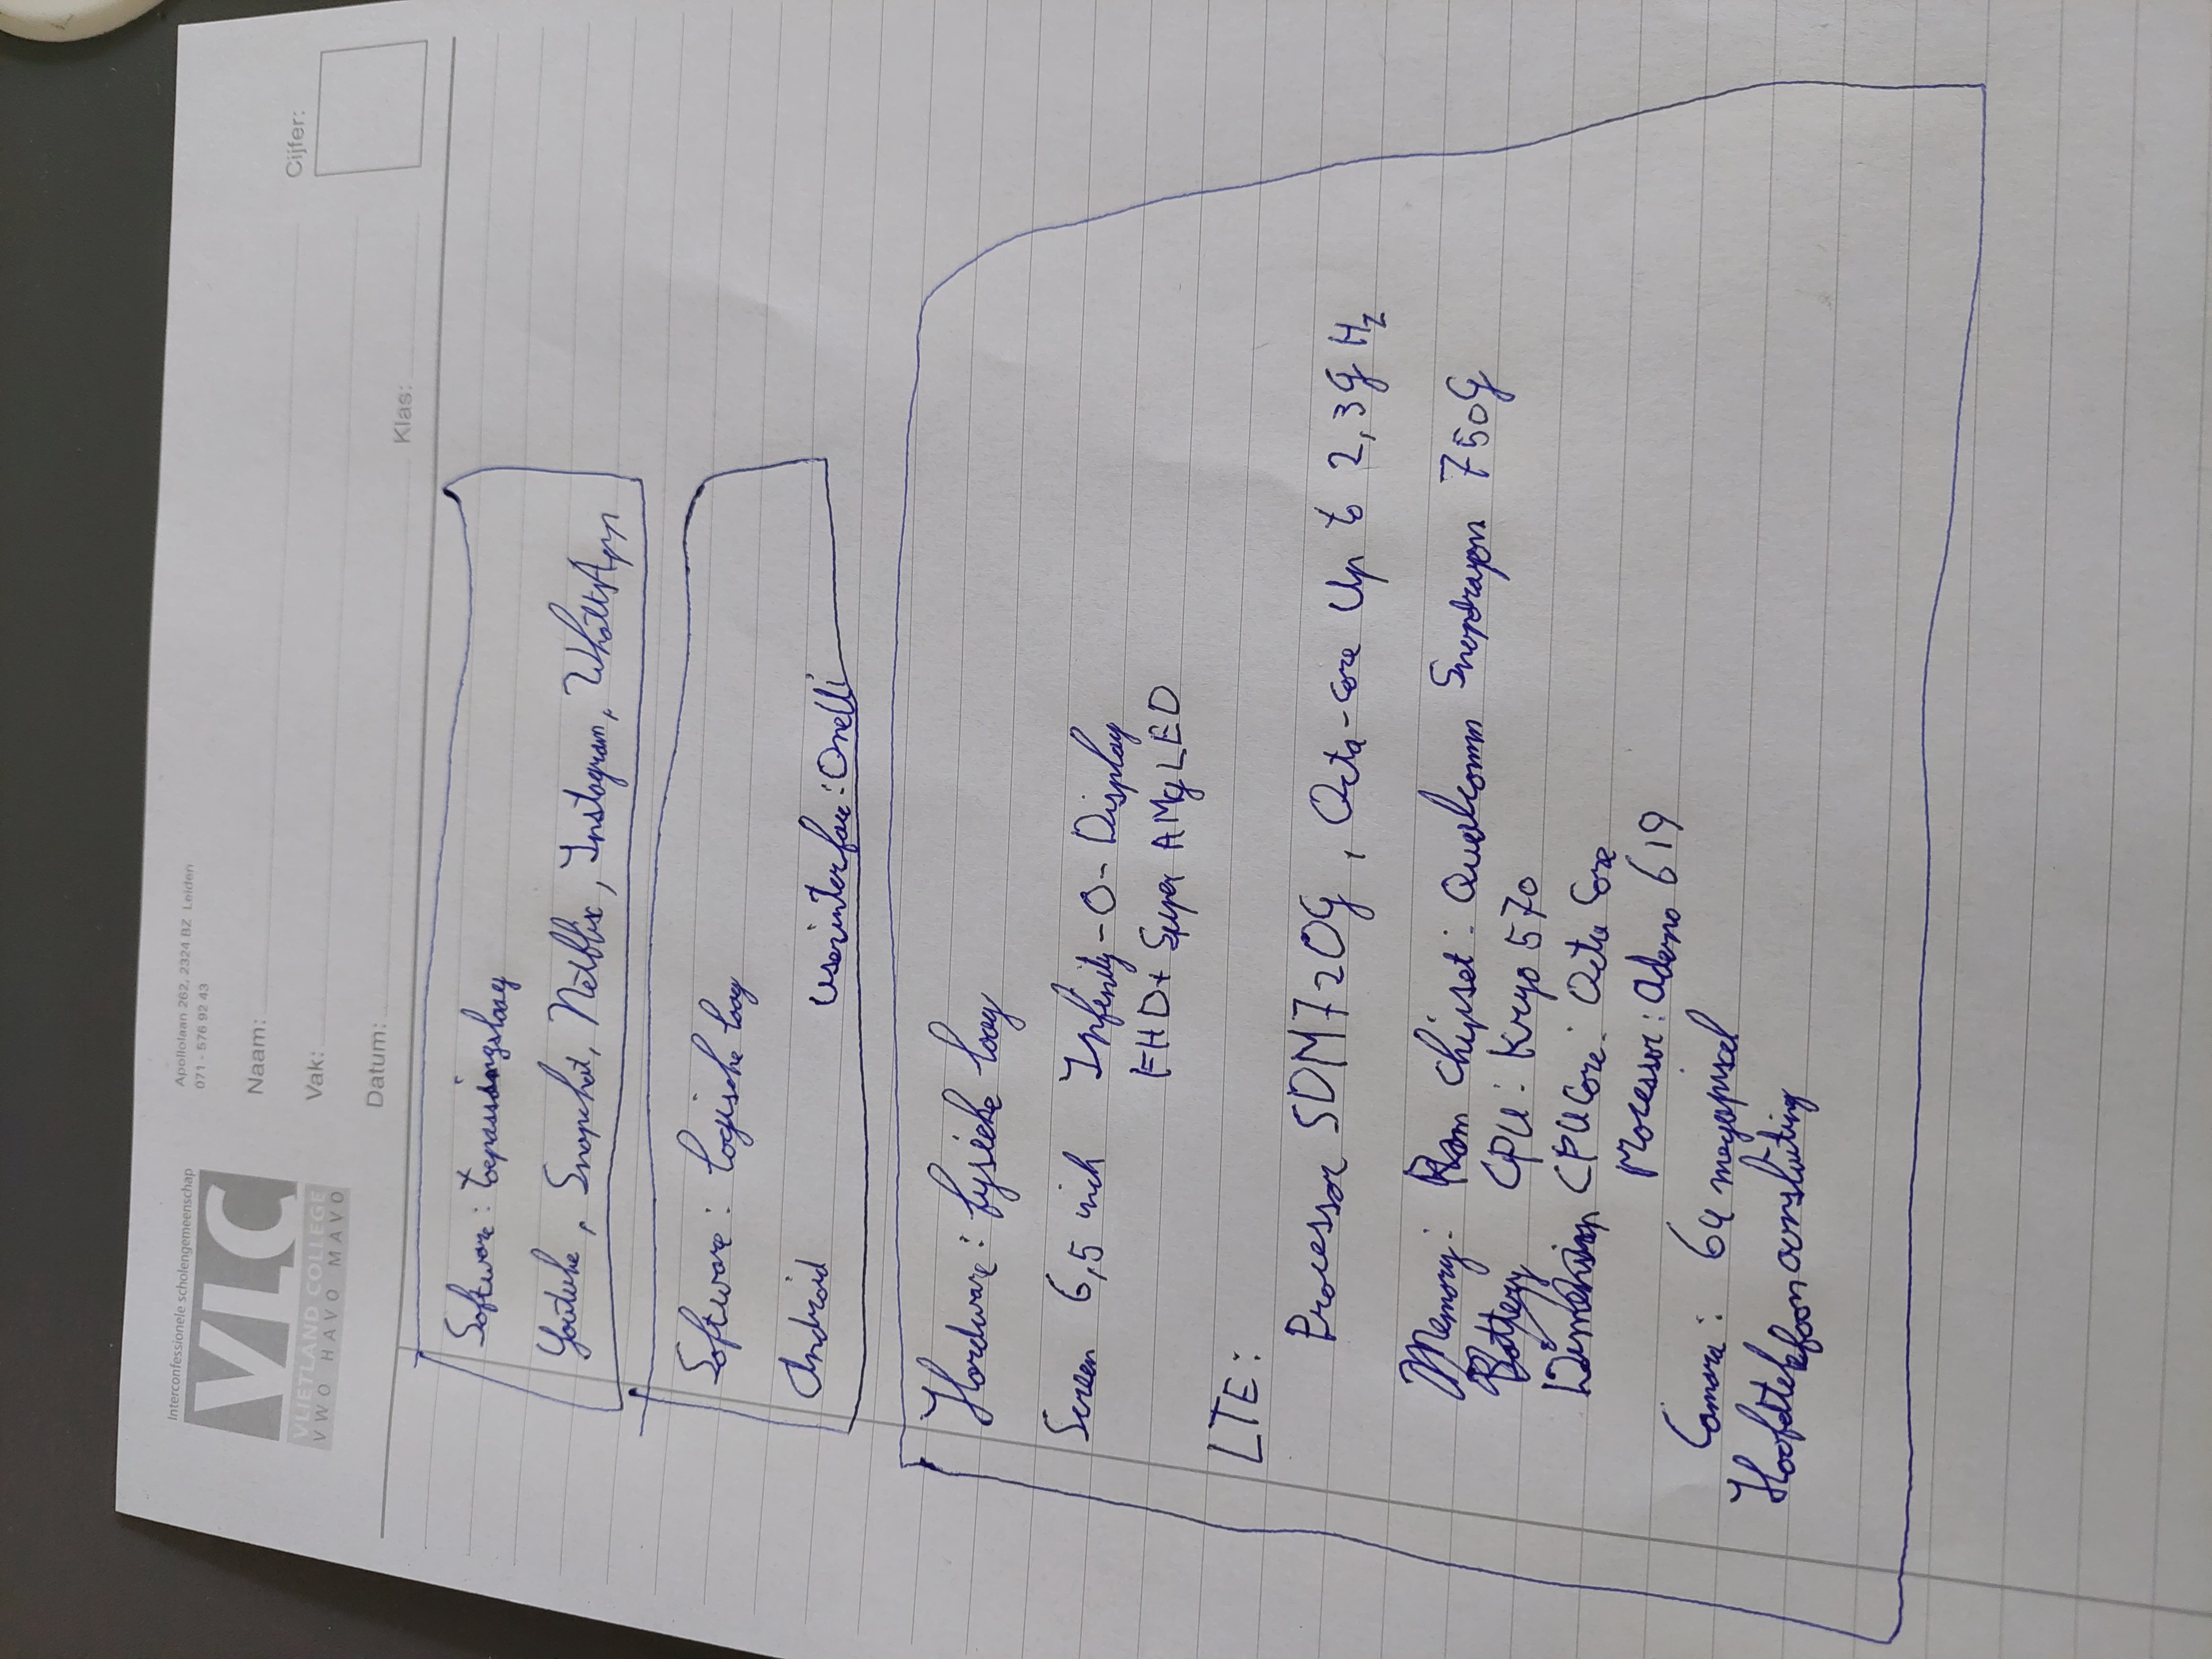 Interconfessionele scholengemeenschap
VLC
VLIETLAND COLLEGE
VWO HAVO MAVO
Apollolaan 262, 2324 BZ Leiden
071 - 576 92 43
Naam:
Vak:
Datum:
Klas:
Cijfer:
Software: toepassingslaag
Youtube, Snapchat, Netflix, Instagram, WhattsApp
Software: logische laag
Android userinterface: OneUi
Hardware: fysieke laag
Screen 6,5 inch Infinity-O-Display
FHD+ Super AMOLED
LTE:
Processor SDM720G, Octa-core Up to 2,3GHz
Memory: Ram Chipset: Qualcomm Snapdragon 750G
Battery CPU: Kryo 570
Dimension CPU Core: Octa Core
processor: Aderno 619
Camara: 64 megapixel
Hoofdtelefoon aansluiting